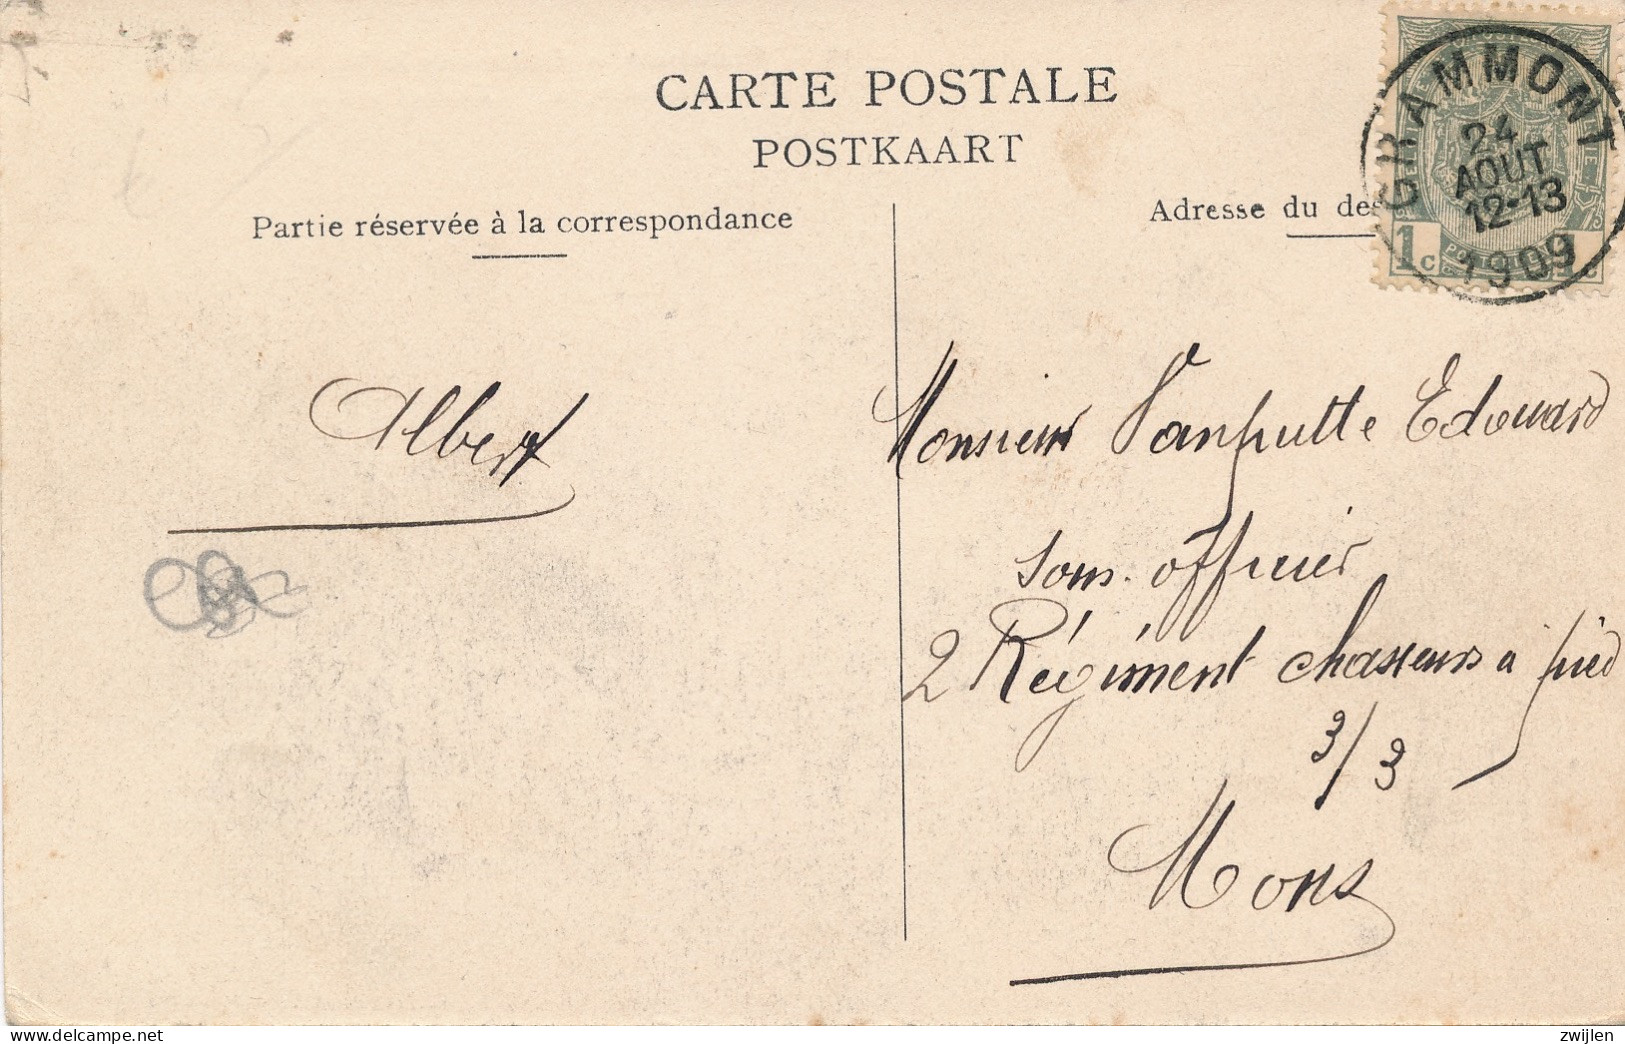 CARTE POSTALE
POSTKAART
Partie réservée à la correspondance
Adresse du des
GRAMMONT
24
AOUT
12-13
1909
1c
Albert
Monsieur Vanputte Edouard
sous-officier
2 Régiment chasseurs à pied
3/3
Mons
delcampe.net
zwijlen